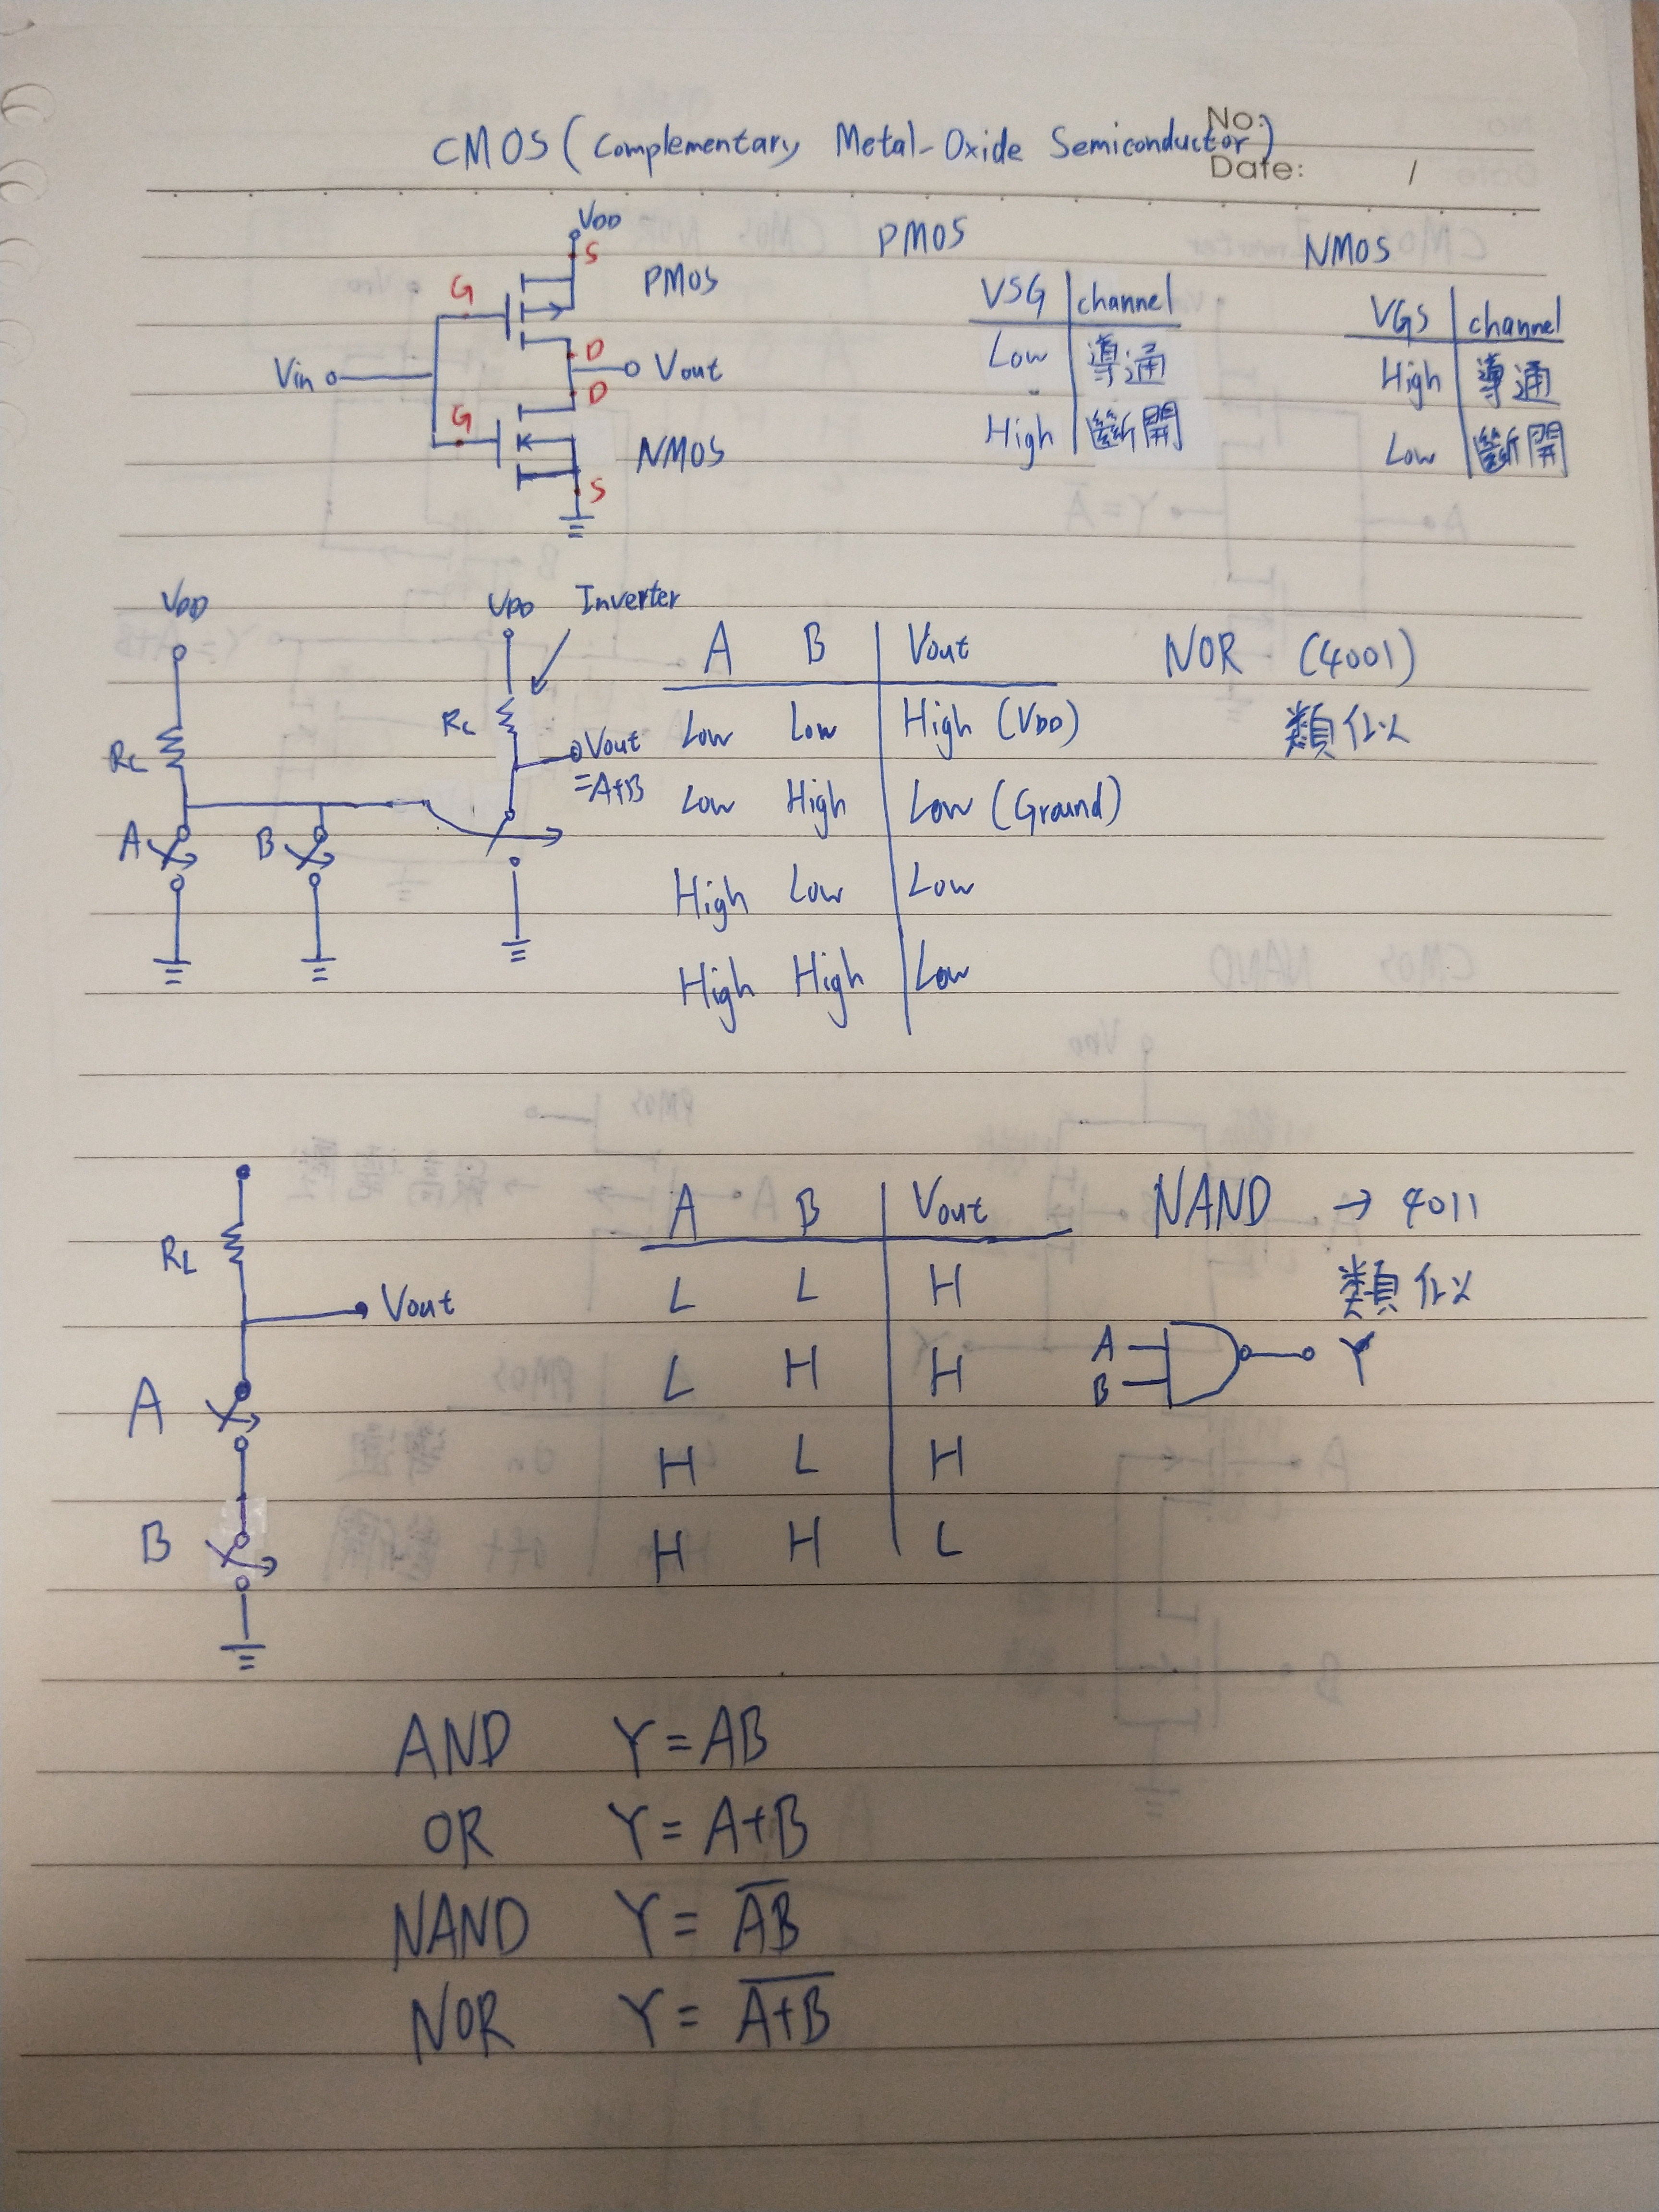 No:
CMOS (Complementary Metal-Oxide Semiconductor)
Date: /
VDD
S
G
PMOS
D
Vin
Vout
D
G
NMOS
S
PMOS
VSG channel
Low 導通
High 斷開
NMOS
VGS channel
High 導通
Low 斷開
VDD
RL
A
B
VDD
Inverter
RL
Vout
=A+B
A B Vout
Low Low High (VDD)
Low High Low (Ground)
High Low Low
High High Low
NOR (4001)
類似
RL
Vout
A
B
A B Vout
L L H
L H H
H L H
H H L
NAND → 4011
類似
A
B
Y
AND Y=AB
OR Y=A+B
NAND Y=A̅B̅
NOR Y=A̅+̅B̅